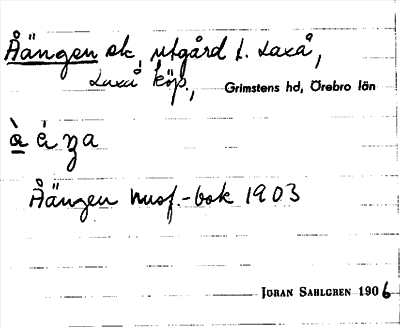 Åängen sk, utgård t. Laxå,
Laxå köp., Grimstens hd, Örebro län
Åängen husf.-bok 1903
JÖRAN SAHLGREN 1906